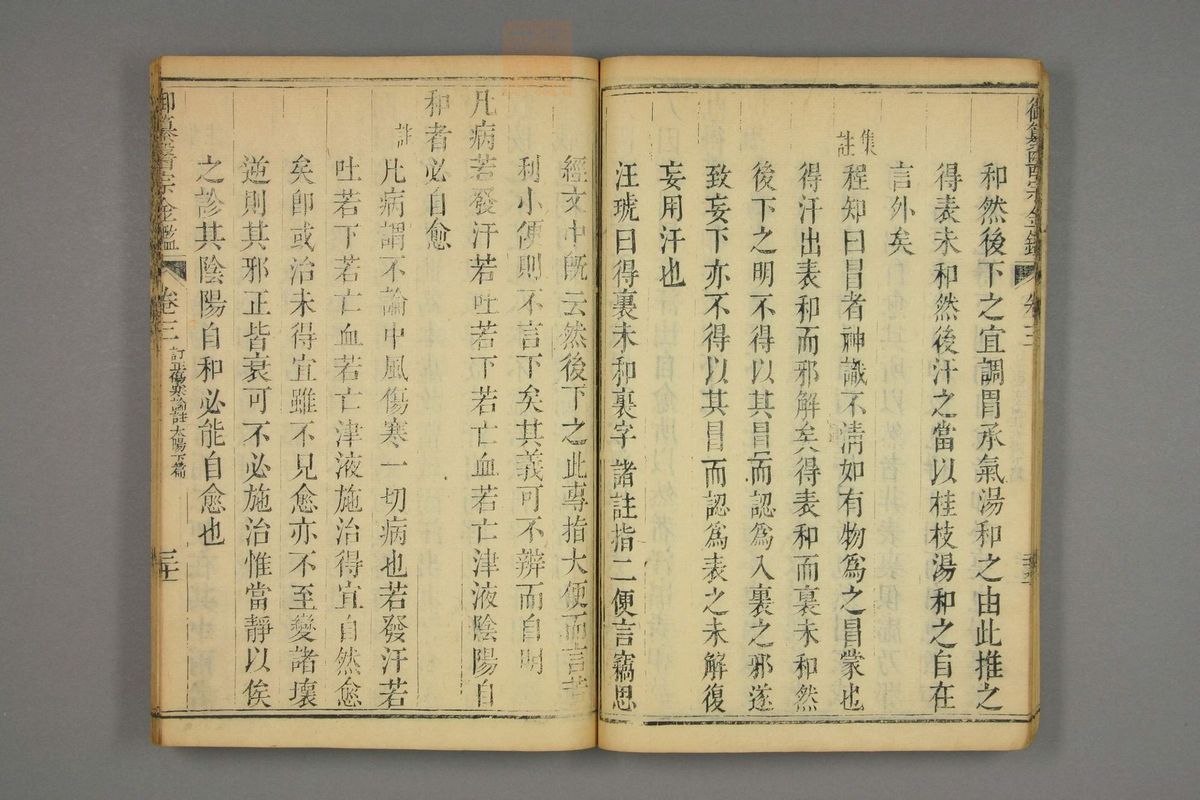 和然後下之宜調胃承氣湯和之由此推之
得表未和然後汗之當以桂枝湯和之自在
言外矣
集註
程知曰冒者神識不清如有物為之冒蒙也
得汗出表和而邪解矣得表和而裏未和然
後下之明不得以其冒而認為入裏之邪遂
致妄下亦不得以其冒而認為表之未解復
妄用汗也
汪琥曰得裏未和裏字諸註指二便言竊思
經文中既云然後下之此專指大便而言若
利小便則不言下矣其義可不辨而自明
凡病若發汗若吐若下若亡血若亡津液陰陽自
和者必自愈
註
凡病謂不論中風傷寒一切病也若發汗若
吐若下若亡血若亡津液施治得宜自然愈
矣即或治未得宜雖不見愈亦不至變諸壞
逆則其邪正皆衰可不必施治惟當靜以俟
之診其陰陽自和必能自愈也
御纂醫宗金鑑
卷三
訂正傷寒論註太陽下篇